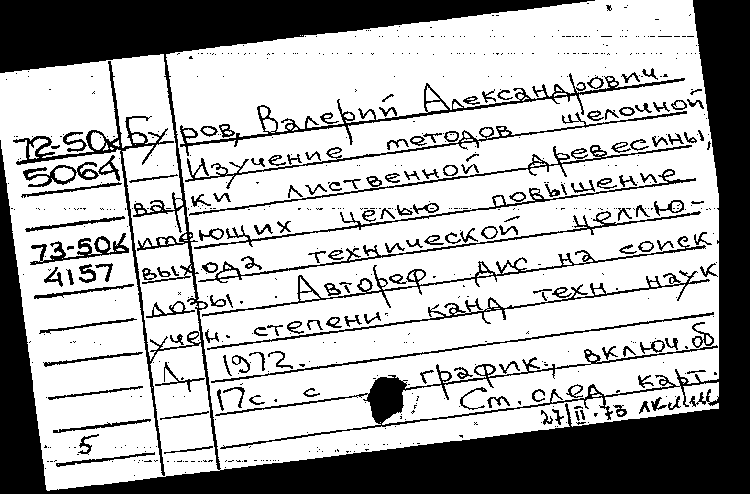 72-50к Буров, Валерий Александрович.
5064 Изучение методов щелочной
варки лиственной древесины,
73-50к имеющих целью повышение
4157 выхода технической целлю-
лозы. Автореф. дис. на соиск.
учен. степени канд. техн. наук
Л., 1972.
17с. с график., включ. об
См. след. карт.
5 27/II-73